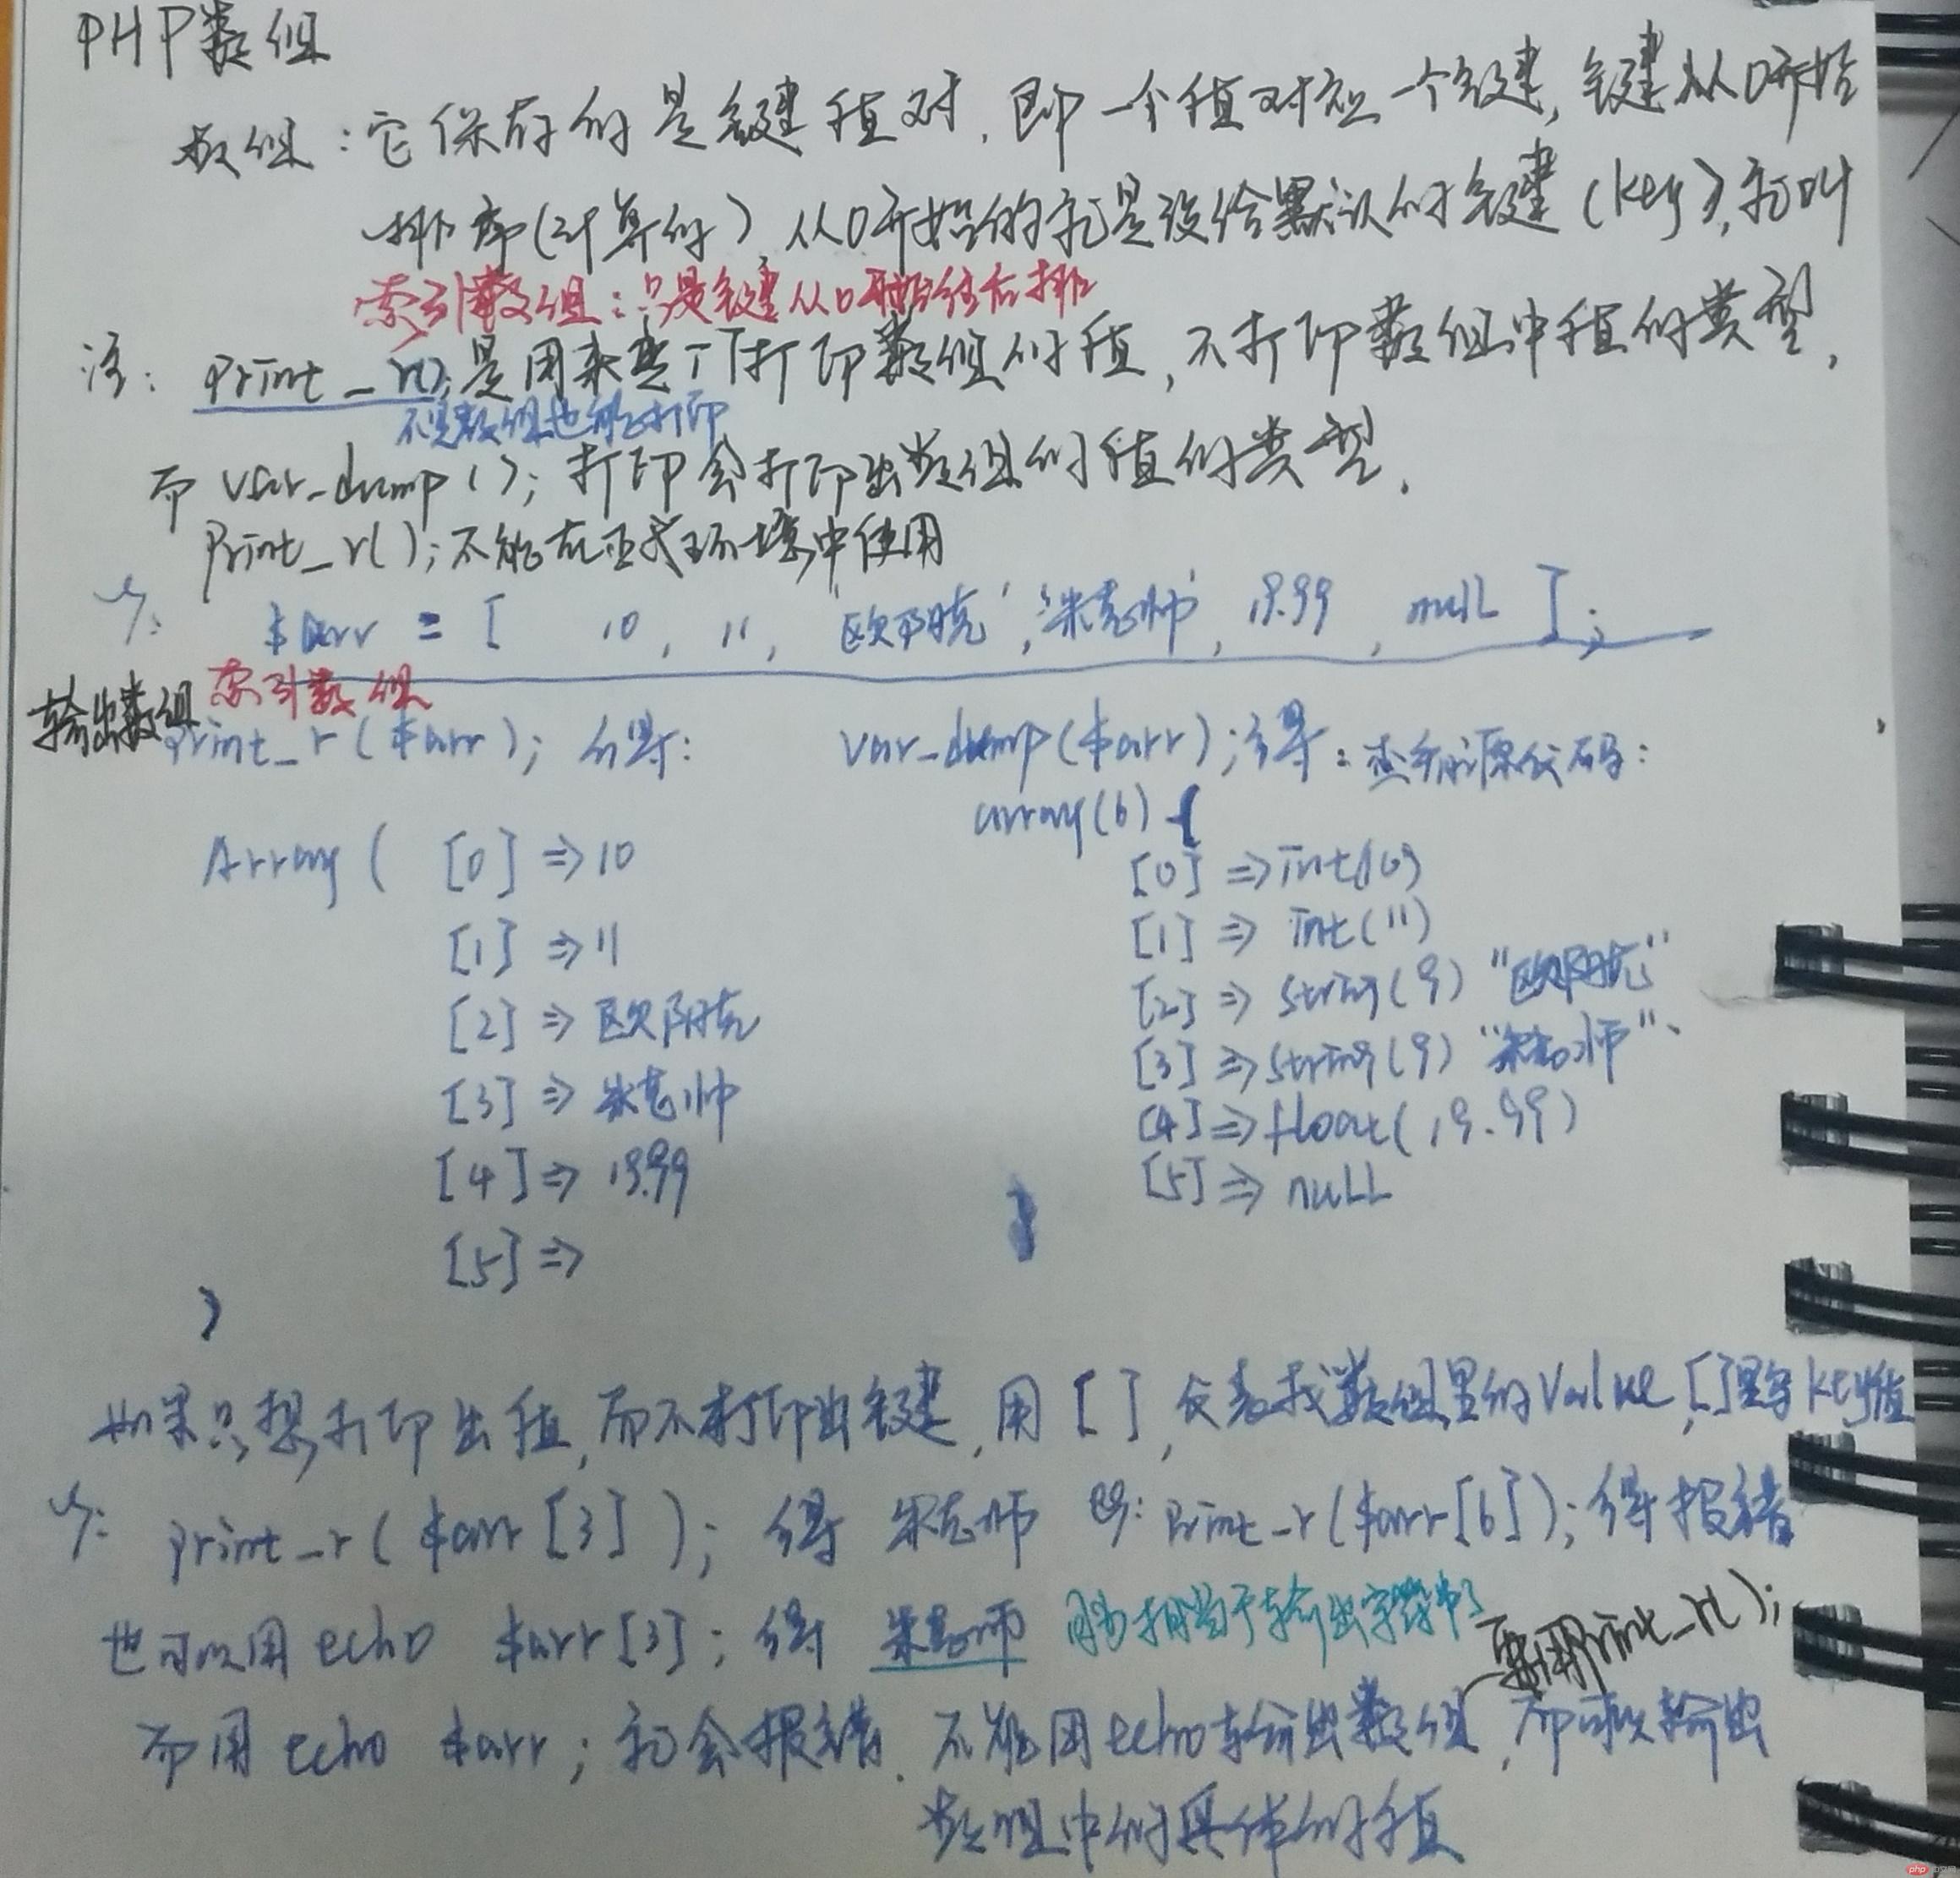 PHP数组
数组：它保存的是键值对，即一个值对应一个键，键从0开始
排序(计算的)，从0开始的就是没给默认的键(key)，就叫
索引数组：只是键从0开始往后排
注：print_r();是用来整个打印数组的值，不打印数组中值的类型，
不是数组也能打印
而 var_dump();打印会打印出数组的值的类型.
Print_r();不能在正式环境中使用
$arr = [ 10, 11, '欧阳克','朱老师', 19.99, null ];
索引数组
输出数组 print_r($arr); 得:
var_dump($arr);得:查看源代码:
Array( [0] => 10
[1] => 11
[2] => 欧阳克
[3] => 朱老师
[4] => 19.99
[5] =>
)
array(6) {
[0] => int(10)
[1] => int(11)
[2] => string(9) "欧阳克"
[3] => string(9) "朱老师"
[4] => float(19.99)
[5] => null
}
如果只想打印出值,而不打印出键,用[],代表找数组里的Value,[]里写key值
print_r($arr[3]); 得 朱老师 eg: Print_r($arr[6]);得报错
也可以用 echo $arr[3]; 得 朱老师 因为相当于输出字符串了
要用Print_r();
而用 echo $arr; 就会报错. 不能用echo输出数组,而可以输出
数组中的具体的值
php